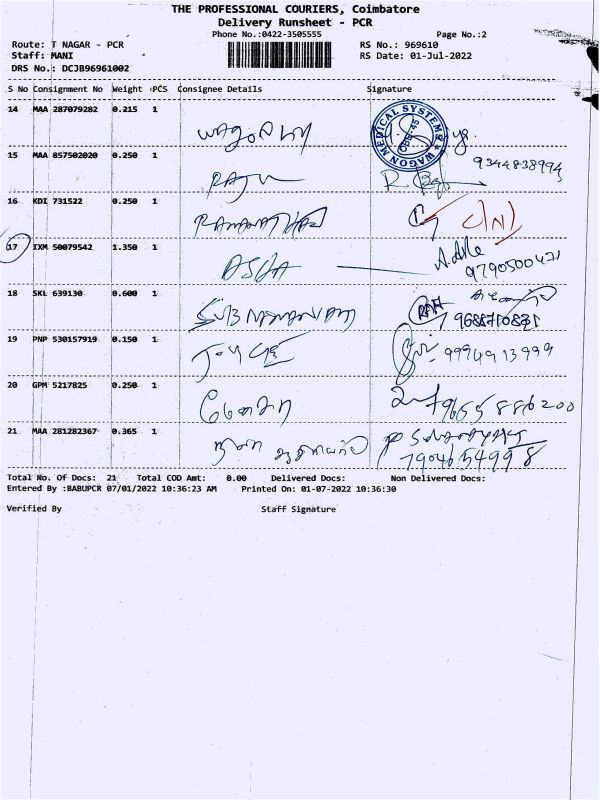 THE PROFESSIONAL COURIERS, Coimbatore
Delivery Runsheet - PCR
Phone No.:0422-3505555 Page No.:2
Route: T NAGAR - PCR RS No.: 969610
Staff: MANI RS Date: 01-Jul-2022
DRS No.: DCJB96961002
S No Consignment No Weight PCS Consignee Details Signature
14 MAA 287079282 0.215 1
WAGON MEDICAL SYSTEMS CBE-45
15 MAA 857502020 0.250 1 9344838994
RAJU
16 KDI 731522 0.250 1
RAMANATHAN
17 IXM 50079542 1.350 1
ASHA 9790500471
18 SKL 639130 0.600 1
SUBRAMANIAM 9688710831
19 PNP 530157919 0.150 1
9994913999
20 GPM 5217825 0.250 1
9655886200
21 MAA 281282367 0.365 1
7904654998
Total No. Of Docs: 21 Total COD Amt: 0.00 Delivered Docs: Non Delivered Docs:
Entered By :BABUPCR 07/01/2022 10:36:23 AM Printed On: 01-07-2022 10:36:30
Verified By Staff Signature